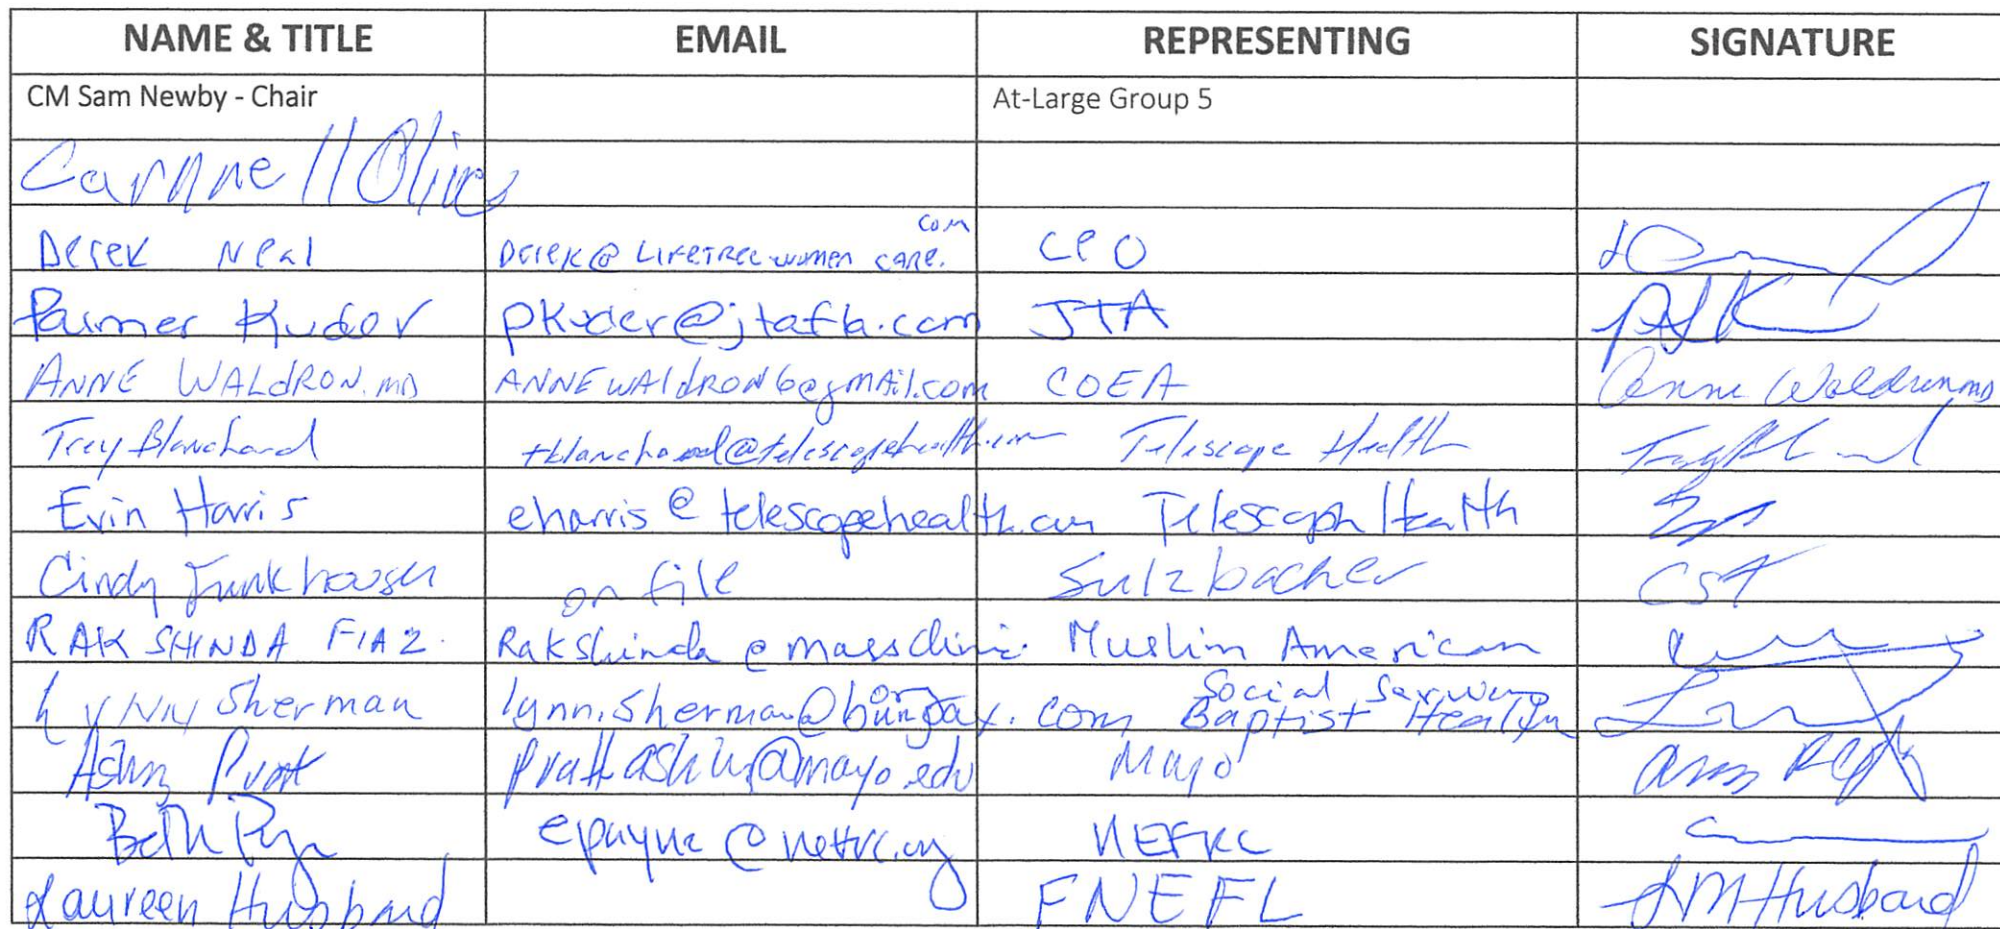 NAME & TITLE EMAIL REPRESENTING SIGNATURE
CM Sam Newby - Chair At-Large Group 5
Derek Neal Derek@Lifetreewomencare.com CEO
Parmer Kuder pkuder@jtafla.com JTA
ANNE WALdRON.MD ANNEWAldRON6@gmAil.com COEA Anne Waldron MD
Trey Blanchard tblanchard@telescopehealth.com Telescope Health
Erin Harris eharris@telescopehealth.com Telescope Health
Cindy Funkhouser on file Sulzbacher
RAKSHINDA FIAZ. Rakshinda@massclinic. Muslim American
org Social Services
Lynn Sherman lynn.sherman@bmcjax.com Baptist Health
Pratt @mayo.edu Mayo
Beth epayne@nefrc.org NEFRC
Laureen Husband FNEFL LM Husband